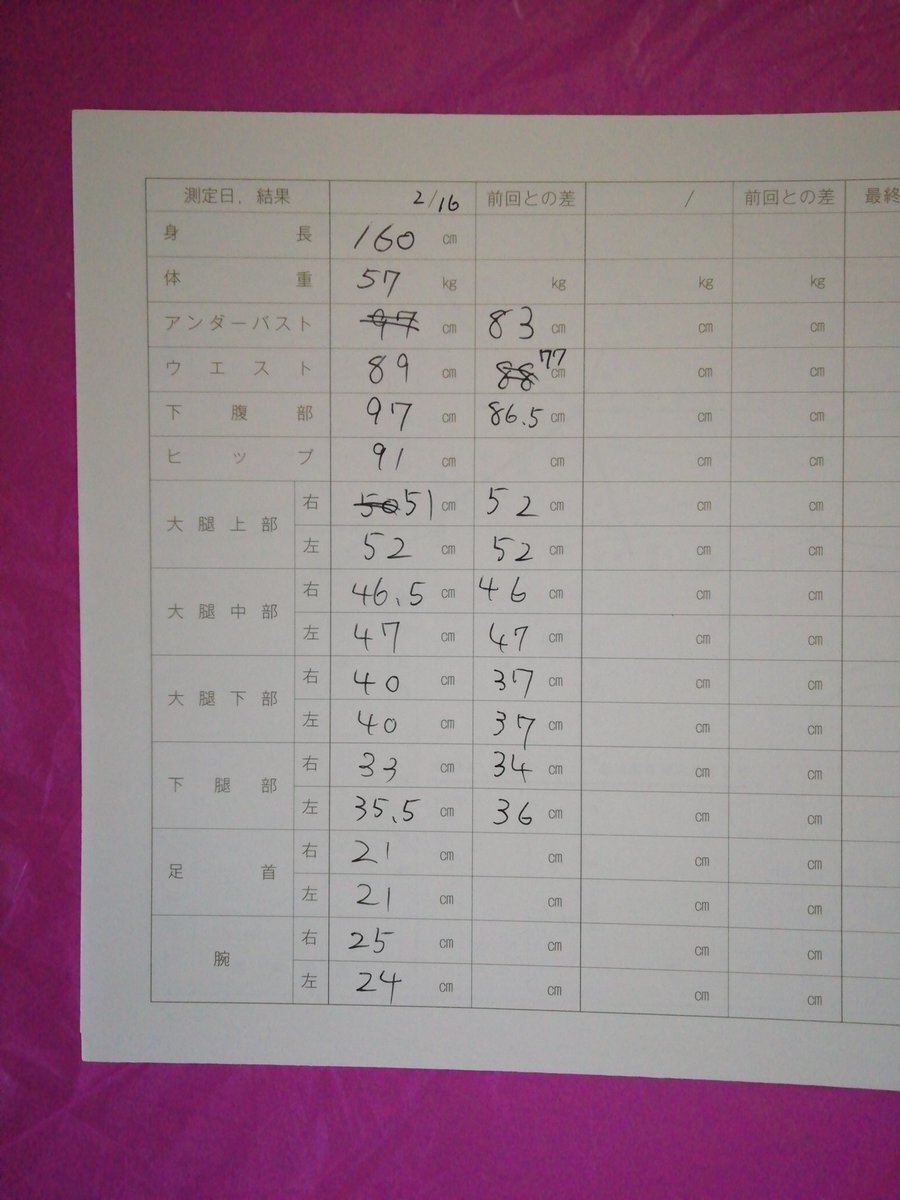 測定日．結果 2/16 前回との差 / 前回との差 最終
身長 160 cm
体重 57 kg kg kg kg
アンダーバスト 97 cm 83 cm cm cm
ウエスト 89 cm 88 77 cm cm cm
下腹部 97 cm 86.5 cm cm cm
ヒップ 91 cm cm cm cm
大腿上部 右 50 51 cm 52 cm cm cm
左 52 cm 52 cm cm cm
大腿中部 右 46.5 cm 46 cm cm cm
左 47 cm 47 cm cm cm
大腿下部 右 40 cm 37 cm cm cm
左 40 cm 37 cm cm cm
下腿部 右 33 cm 34 cm cm cm
左 35.5 cm 36 cm cm cm
足首 右 21 cm cm cm cm
左 21 cm cm cm cm
腕 右 25 cm cm cm cm
左 24 cm cm cm cm